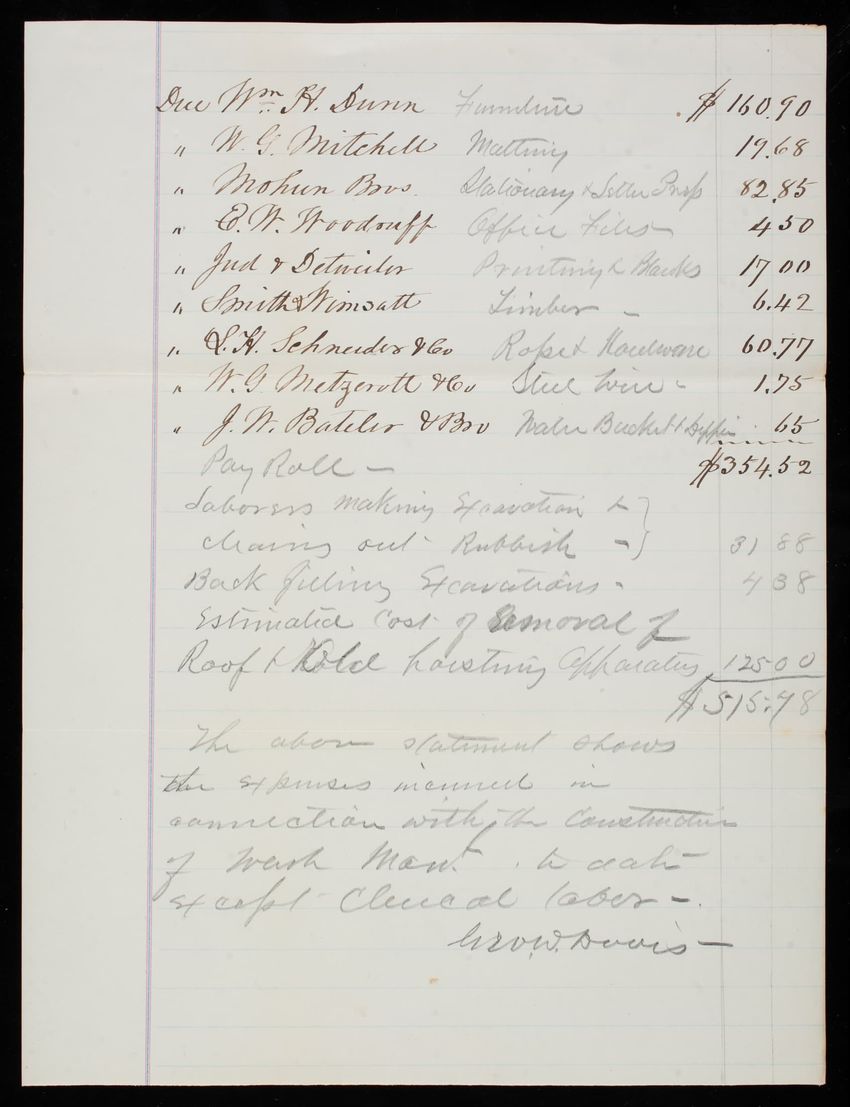 Due Wm. H. Dunn Furniture $160.90
" W. G. Mitchell Matting 19.68
" Mohun Bros. Stationary & Letter Press 82.85
" E. W. Woodruff Office Files 4 50
" Jud & Detwiler Printing & Blanks 17 00
" Smith & Wimsatt Timber 6.42
" L. H. Schneider & Co Rope & Hardware 60.77
" W. G. Metzerott & Co Steel Wire 1.75
" J. W. Boteler & Bro Water Bucket & Dipper 65
$354.52
Pay Roll —
Laborers making Excavation &
cleaning out Rubbish 31 88
Back filling Excavations 4 38
Estimated Cost of removal of
Roof & Old hoisting apparatus 125 00
$515.78
The above statement shows
the expenses incurred in
connection with the Construction
of Wash Mon't. to date
except Clerical labor —.
Geo. W. Davis —